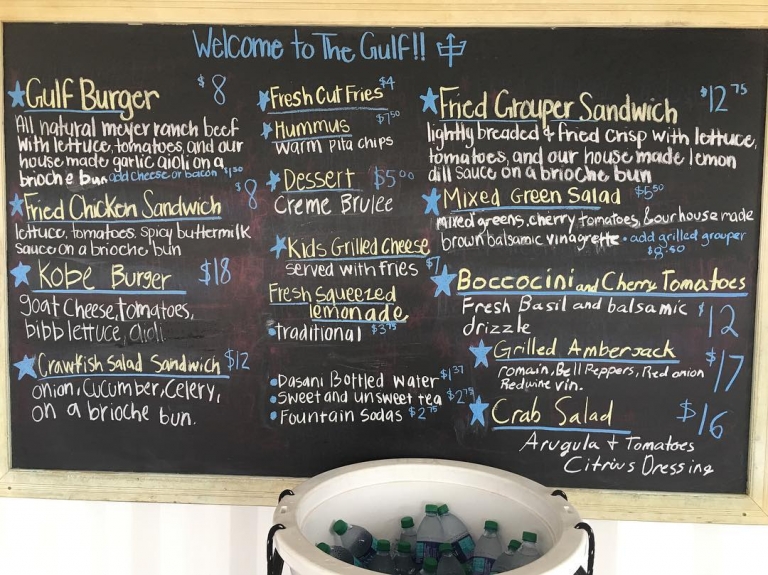 Welcome to The Gulf!!
Gulf Burger $8
All natural meyer ranch beef
with lettuce, tomatoes, and our
house made garlic aioli on a
brioche bun add cheese or bacon $1.50
Fried Chicken Sandwich $8
lettuce, tomatoes. spicy buttermilk
sauce on a brioche bun
Kobe Burger $18
goat cheese, tomatoes,
bibb lettuce, aioli
Crawfish Salad Sandwich $12
onion, cucumber, celery,
on a brioche bun.
Fresh Cut Fries $4
Hummus $7.50
warm pita chips
Dessert $5.00
Creme Brulee
Kids Grilled Cheese
served with fries $7
Fresh Squeezed
lemonade
traditional $3.75
Dasani Bottled water $1.37
Sweet and unsweet tea $2.75
Fountain Sodas $2.75
Fried Grouper Sandwich $12.75
lightly breaded & fried crisp with lettuce,
tomatoes, and our house made lemon
dill sauce on a brioche bun
Mixed Green Salad $5.50
mixed greens, cherry tomatoes, & our house made
brown balsamic vinagrette • add grilled grouper
$8.50
Boccocini and Cherry Tomatoes
Fresh Basil and balsamic $12
drizzle
Grilled Amberjack $17
romain, Bell Peppers, Red onion
Redwine vin.
Crab Salad $16
Arugula + Tomatoes
Citrius Dressing